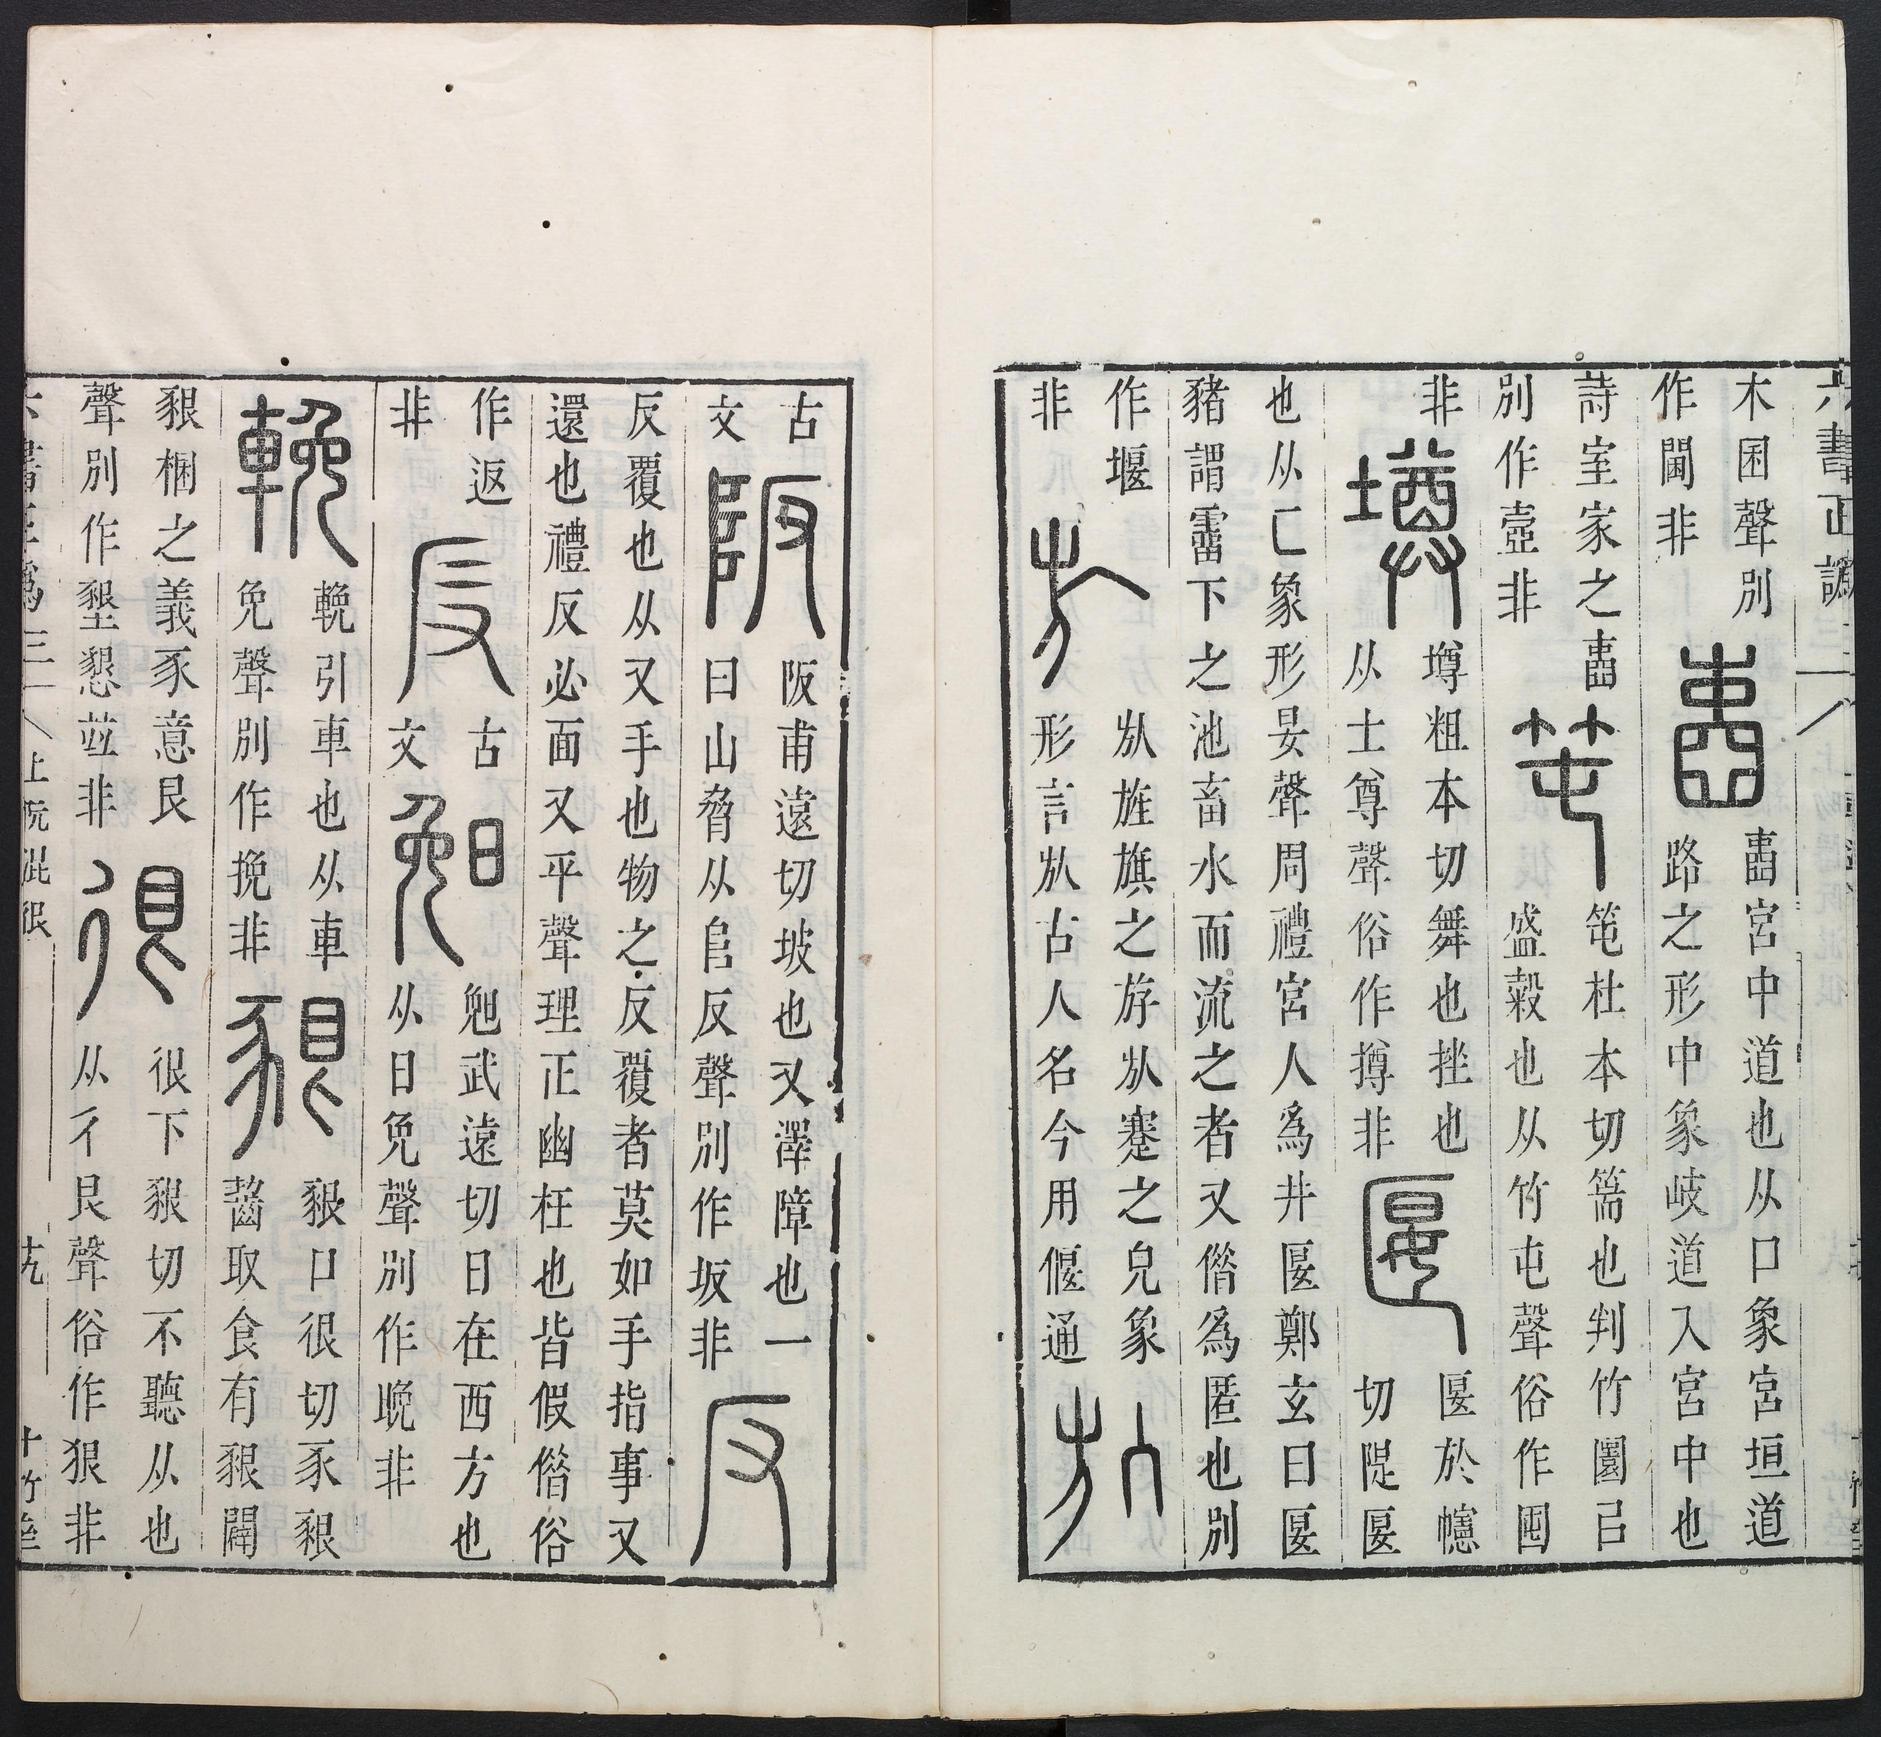 六書正譌
木困聲別
作閫非
壼
壼宮中道也从囗象宮垣道
路之形中象岐道入宮中也
詩室家之壼
別作壺非
笹
笹杜本切篅也判竹圜㠯
盛榖也从竹屯聲俗作囤
非
壿
壿粗本切舞也挫也
从士尊聲俗作撙非
匽
匽於幰
切隄匽
也从匸象形妟聲周禮宮人爲井匽鄭玄曰匽
豬謂霤下之池畜水而流之者又僣爲匿也別
作堰
非
㫃
㫃旌旗之斿㫃蹇之皃象
形言㫃古人名今用偃通
㫃
古
文
阪
阪甫遠切坡也又澤障也一
曰山脅从𨸏反聲別作坂非
反
反覆也从又手也物之反覆者莫如手指事又
還也禮反必面又平聲理正幽枉也皆假僣俗
作返
非
反
古
文
晚
晚武遠切日在西方也
从日免聲別作晩非
輓
輓引車也从車
免聲別作挽非
豤
豤口很切豕豤
齧取食有豤闢
豤梱之義豕意艮
聲別作墾懇竝非
很
很下豤切不聽从也
从彳艮聲俗作狠非
六書正譌三 上阮混很 十竹